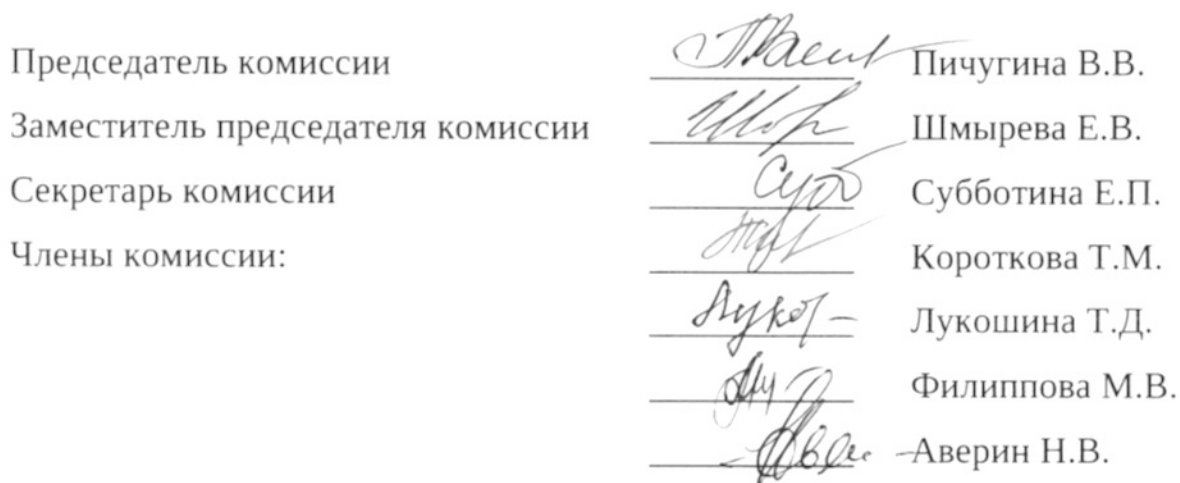 Председатель комиссии Пичугина В.В.
Заместитель председателя комиссии Шмырева Е.В.
Секретарь комиссии Субботина Е.П.
Члены комиссии: Короткова Т.М.
Лукошина Т.Д.
Филиппова М.В.
Аверин Н.В.